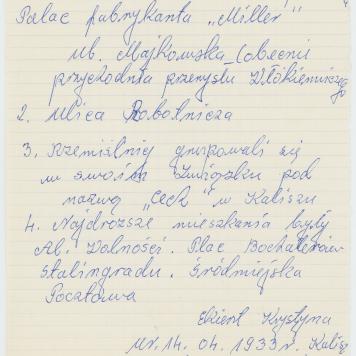 Pałac fabrykanta "Miller"
ul. Majkowska (obecnie
przychodnia przemysłu Włókienniczego
2. Ulica Robotnicza
3. Rzemieślnicy grupowali się
w swoim Związku pod
nazwą "Cech" w Kaliszu
4. Najdroższe mieszkania były
Al. Wolności. Plac Bochaterów
Stalingradu. Śródmiejska
Pocztowa
Krystyna
ur. 14. 04. 1933 r. Kalisz